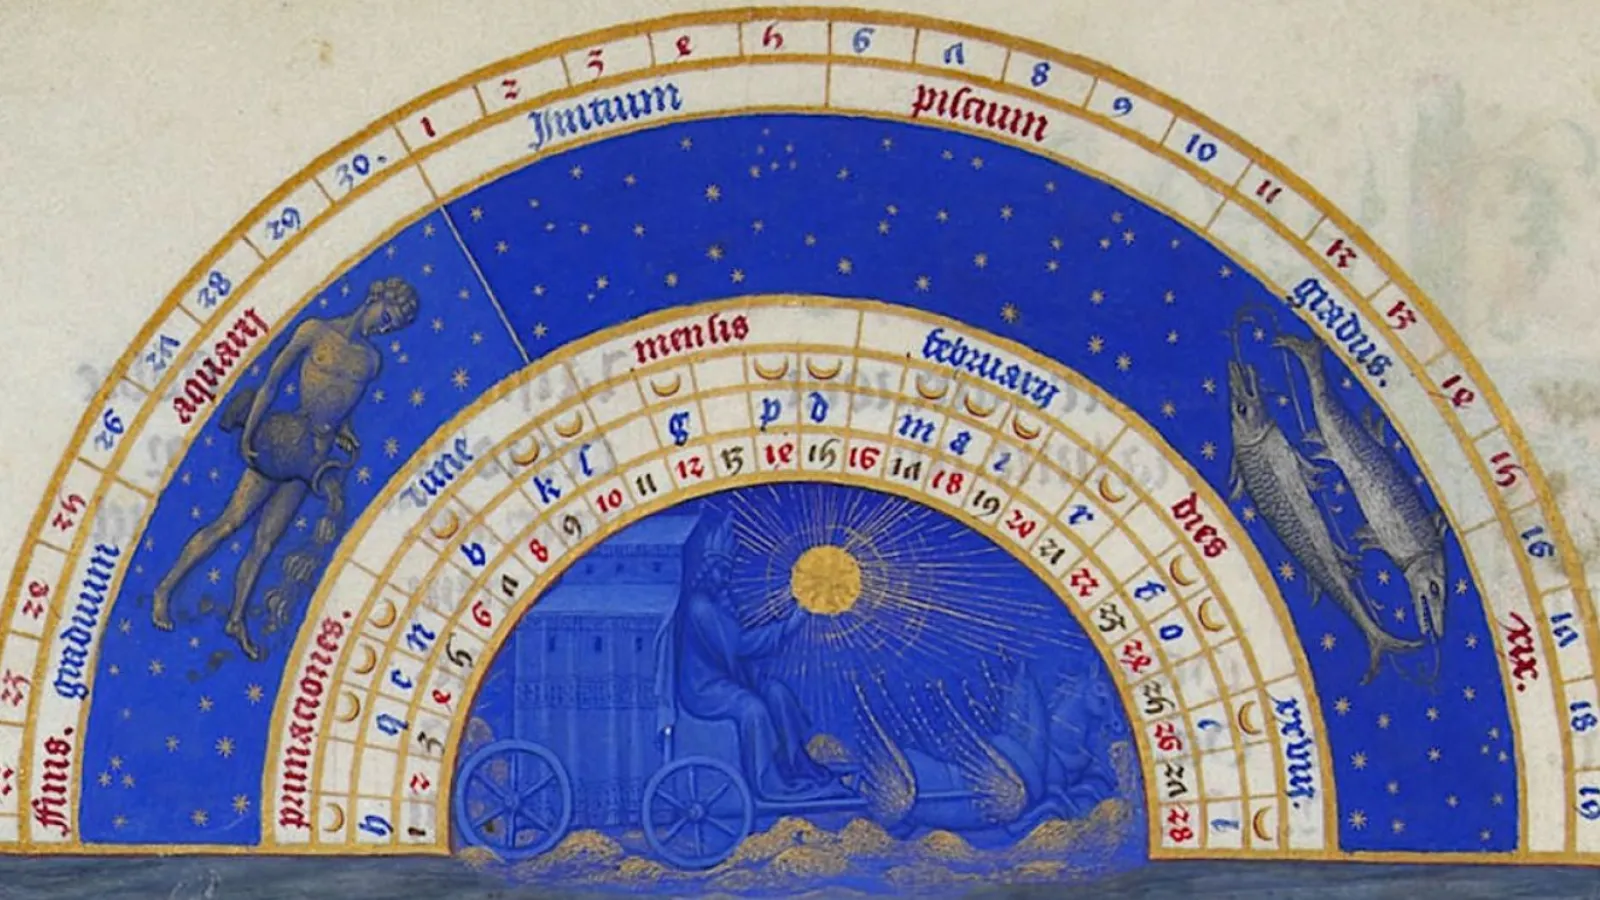 23 24 25 26 27 28 29 30. 1 2 3 4 5 6 7 8 9 10 11 12 13 14 15 16 17 18 19
ffinis. graduum aquarii Initium piscium gradus. xix.
primaciones. lune mensis februarii dies xxviii.
h q c n b k l g p d m a i r f o
1 2 3 4 5 6 7 8 9 10 11 12 13 14 15 16 17 18 19 20 21 22 23 24 25 26 27 28